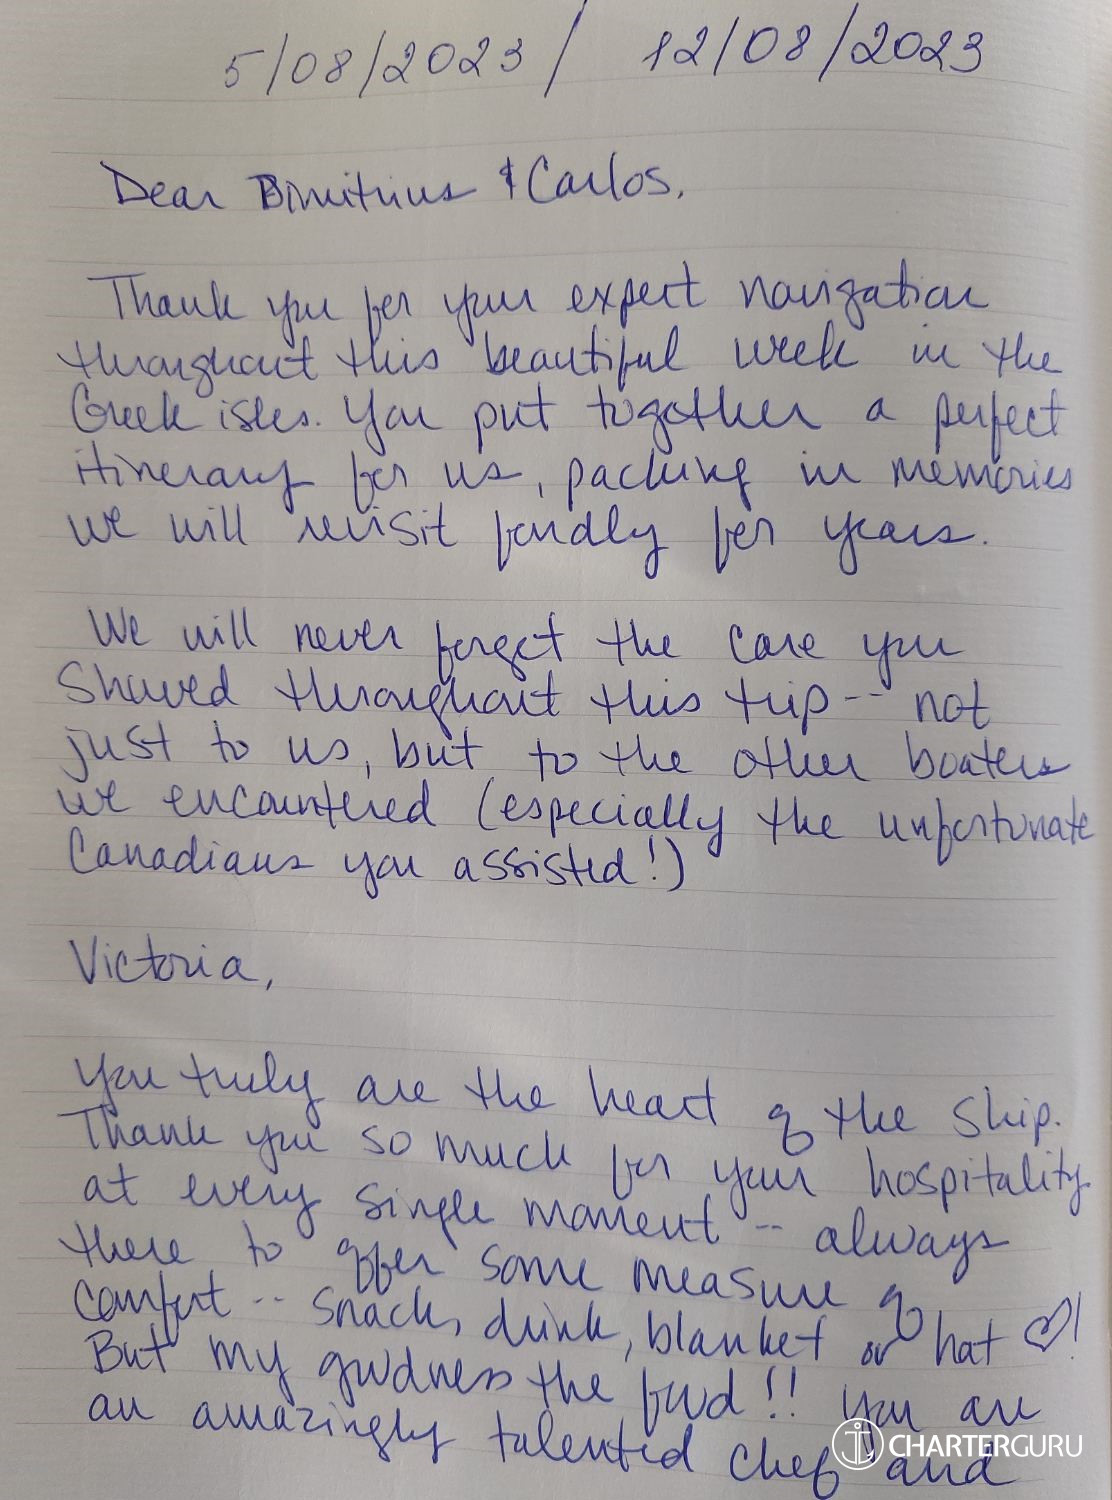 5/08/2023 / 12/08/2023
Dear Dimitrius & Carlos,
Thank you for your expert navigation
throughout this beautiful week in the
Greek isles. You put together a perfect
itinerary for us, packing in memories
we will revisit fondly for years.
We will never forget the care you
showed throughout this trip -- not
just to us, but to the other boaters
we encountered (especially the unfortunate
Canadians you assisted!)
Victoria,
You truly are the heart of the ship.
Thank you so much for your hospitality
at every single moment -- always
there to offer some measure of
comfort -- snack, drink, blanket or hat ♡!
But my goodness the food!! You are
an amazingly talented chef and
CHARTERGURU